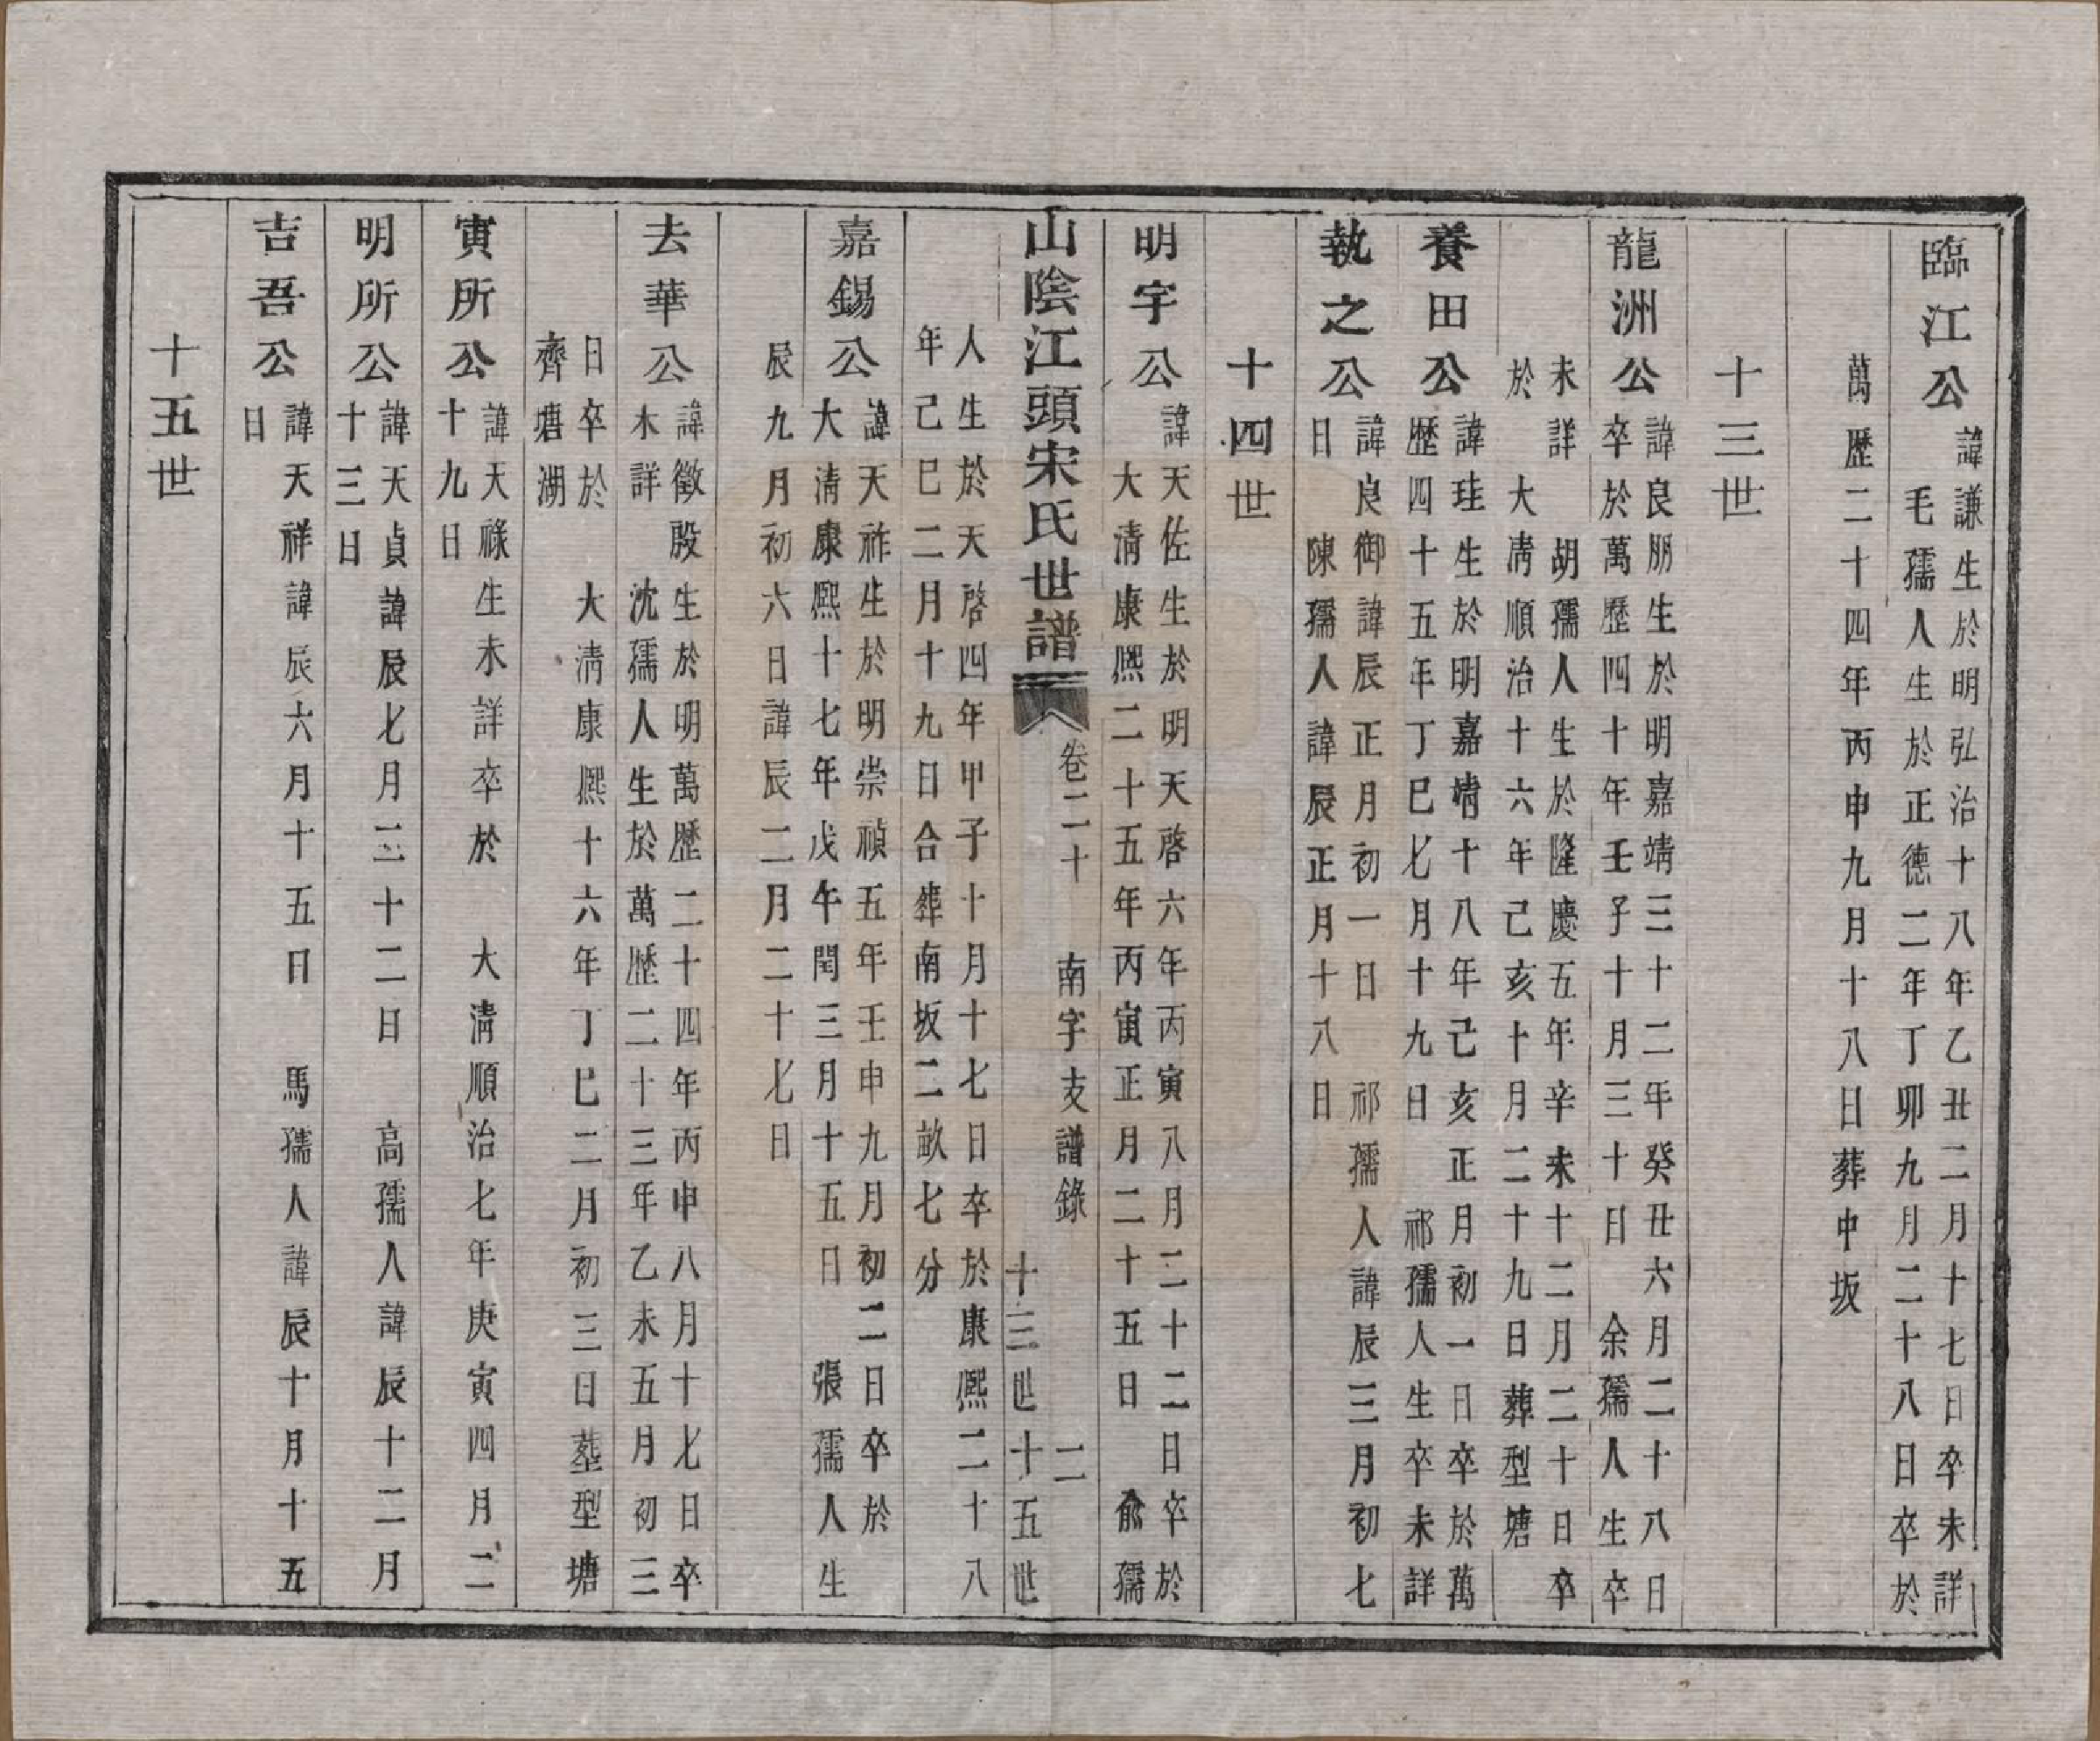 臨江公
諱謙生於明弘治十八年乙丑二月十七日卒未詳
毛孺人生於正德二年丁卯九月二十八日卒於
萬歷二十四年丙申九月十八日葬中坂
十三世
龍洲公
諱良朋生於明嘉靖三十二年癸丑六月二十八日
卒於萬歷四十年壬子十月三十日 余孺人生卒
未詳 胡孺人生於隆慶五年辛未十二月二十日卒
於 大清順治十六年己亥十月二十九日葬型塘
養田公
諱珪生於明嘉靖十八年己亥正月初一日卒於萬
歷四十五年丁巳七月十九日 祁孺人生卒未詳
執之公
諱良御諱辰正月初一日 祁孺人諱辰三月初七
日 陳孺人諱辰正月十八日
十四世
明宇公
諱天佐生於明天啓六年丙寅八月二十二日卒於
大清康熙二十五年丙寅正月二十五日 俞孺
山陰江頭宋氏世譜
卷二十 南字支譜錄 二
十三世十五世
人生於天啓四年甲子十月十七日卒於康熙二十八
年己巳二月十九日合葬南坂二畝七分
嘉錫公
諱天祚生於明崇禎五年壬申九月初二日卒於
大清康熙十七年戊午閏三月十五日 張孺人生
辰九月初六日諱辰二月二十七日
去華公
諱徵殷生於明萬歷二十四年丙申八月十七日卒
未詳 沈孺人生於萬歷二十三年乙未五月初三
日卒於 大清康熙十六年丁巳二月初三日塟型塘
齊塘湖
寅所公
諱天祿生未詳卒於 大清順治七年庚寅四月二
十九日
明所公
諱天貞諱辰七月三十二日 高孺人諱辰十二月
十三日
吉吾公
諱天祥諱辰六月十五日 馬孺人諱辰十月十五
日
十五世